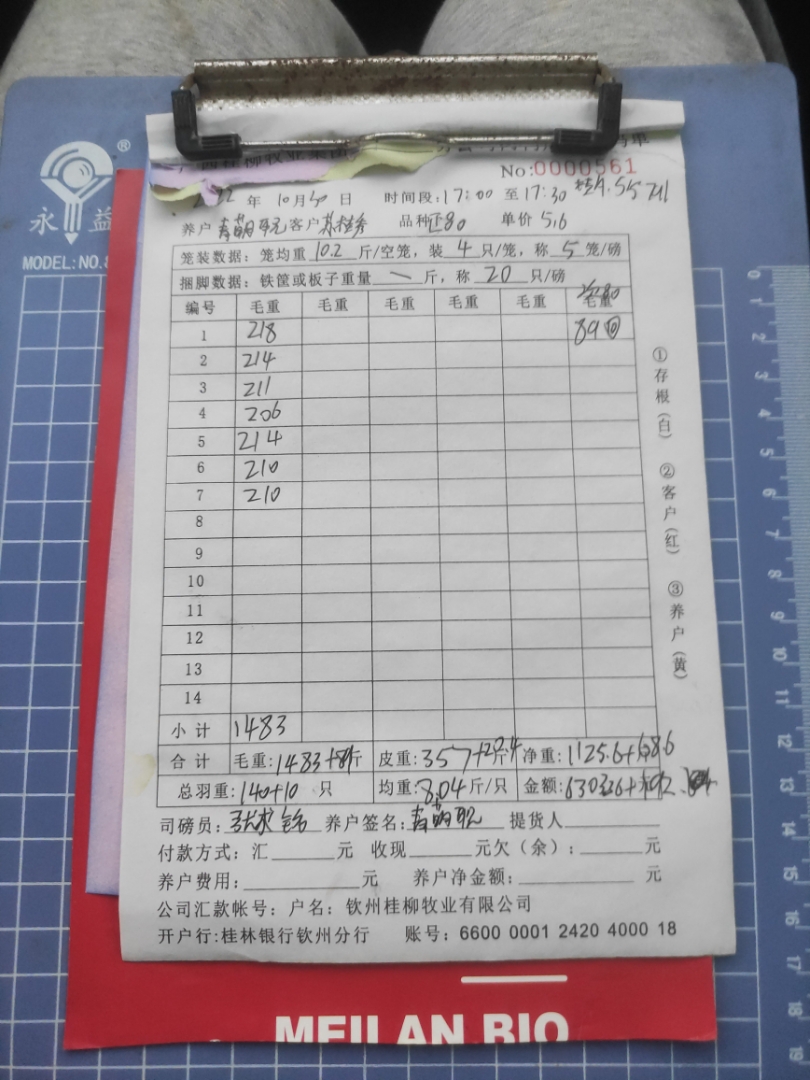 永益
®
MODEL:NO.8
西桂柳牧业集团
No:0000561
22 年 10 月 30 日 时间段:17:00 至 17:30
养户 客户 品种 80 单价 5.6
笼装数据: 笼均重 10.2 斤/空笼, 装 4 只/笼, 称 5 笼/磅
捆脚数据: 铁筐或板子重量 — 斤, 称 20 只/磅
编号 毛重 毛重 毛重 毛重 毛重 毛重
1 218 89
2 214
3 211
4 206
5 214
6 210
7 210
8
9
10
11
12
13
14
小计 1483
合计 毛重:1483+89斤 皮重:357+20.4斤 净重:1125.6+68.6
总羽重:140+10 只 均重:8.04斤/只 金额:
司磅员: 养户签名: 提货人
付款方式: 汇 元 收现 元欠(余): 元
养户费用: 元 养户净金额: 元
公司汇款帐号: 户名: 钦州桂柳牧业有限公司
开户行:桂林银行钦州分行 账号: 6600 0001 2420 4000 18
①存根(白) ②客户(红) ③养户(黄)
MEILAN BIO
0
1
2
3
4
5
6
7
8
9
10
11
12
13
14
15
16
17
18
19